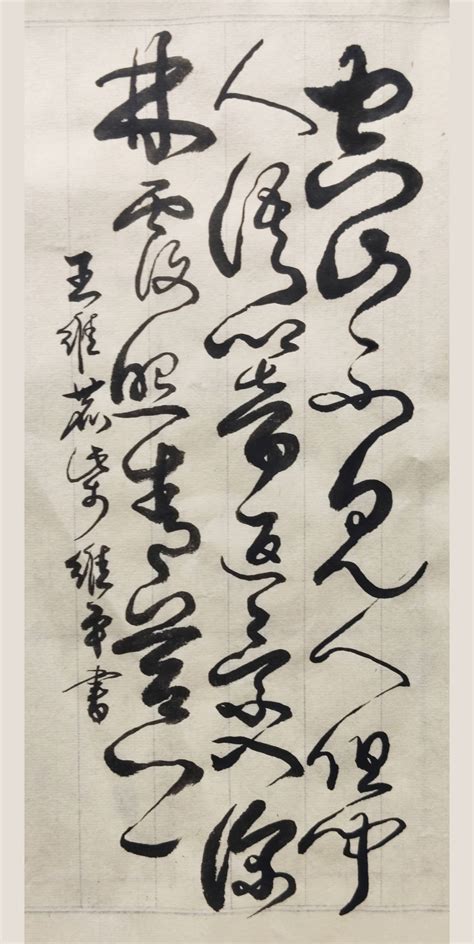 空山不見人但聞
人語響返景入深
林覆照青苔上
王維鹿柴維平書